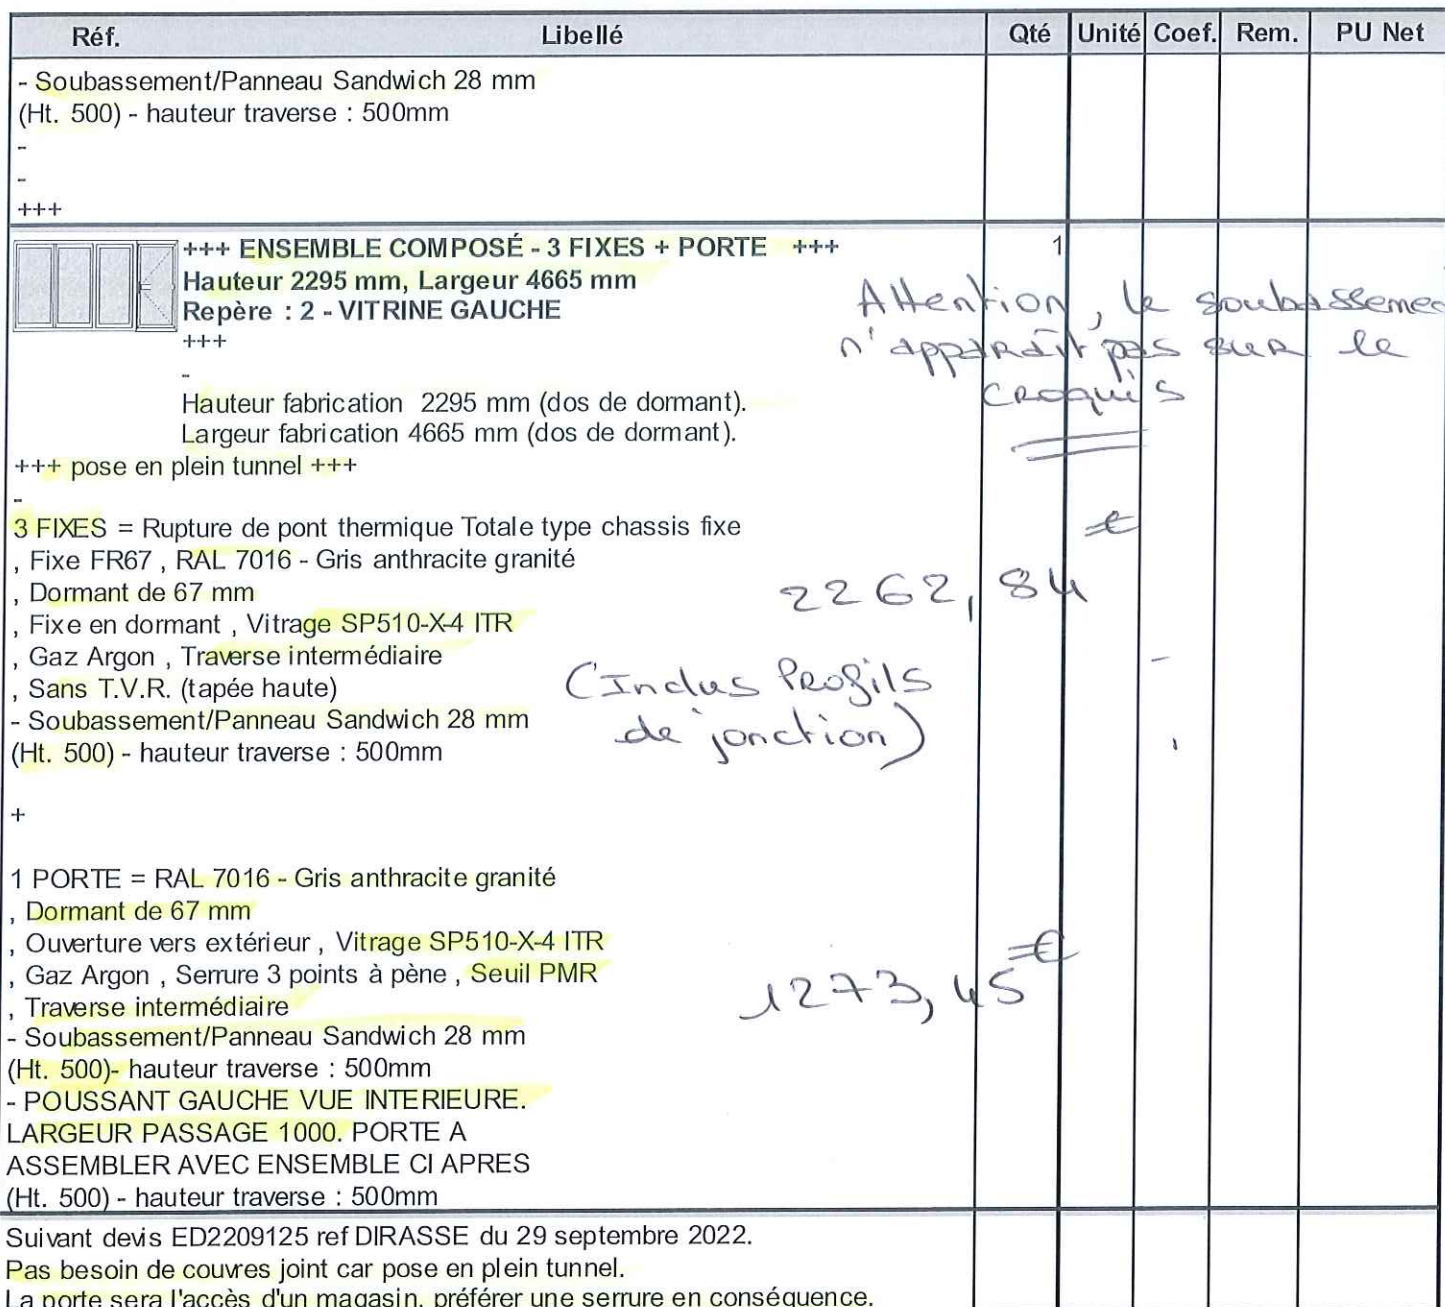 Réf. Libellé Qté Unité Coef. Rem. PU Net
- Soubassement/Panneau Sandwich 28 mm
(Ht. 500) - hauteur traverse : 500mm
-
-
+++
+++ ENSEMBLE COMPOSÉ - 3 FIXES + PORTE +++ 1
Hauteur 2295 mm, Largeur 4665 mm
Repère : 2 - VITRINE GAUCHE
+++
-
Attention, le soubassemen
n'apparaît pas sur le
croquis
Hauteur fabrication 2295 mm (dos de dormant).
Largeur fabrication 4665 mm (dos de dormant).
+++ pose en plein tunnel +++
-
3 FIXES = Rupture de pont thermique Totale type chassis fixe
, Fixe FR67 , RAL 7016 - Gris anthracite granité
, Dormant de 67 mm
2262,84 €
, Fixe en dormant , Vitrage SP510-X-4 ITR
, Gaz Argon , Traverse intermédiaire
, Sans T.V.R. (tapée haute)
- Soubassement/Panneau Sandwich 28 mm
(Ht. 500) - hauteur traverse : 500mm
(Inclus Profils
de jonction)
+
1 PORTE = RAL 7016 - Gris anthracite granité
, Dormant de 67 mm
, Ouverture vers extérieur , Vitrage SP510-X-4 ITR
, Gaz Argon , Serrure 3 points à pène , Seuil PMR
1273,45 €
, Traverse intermédiaire
- Soubassement/Panneau Sandwich 28 mm
(Ht. 500)- hauteur traverse : 500mm
- POUSSANT GAUCHE VUE INTERIEURE.
LARGEUR PASSAGE 1000. PORTE A
ASSEMBLER AVEC ENSEMBLE CI APRES
(Ht. 500) - hauteur traverse : 500mm
Suivant devis ED2209125 ref DIRASSE du 29 septembre 2022.
Pas besoin de couvres joint car pose en plein tunnel.
La porte sera l'accès d'un magasin, préférer une serrure en conséquence.